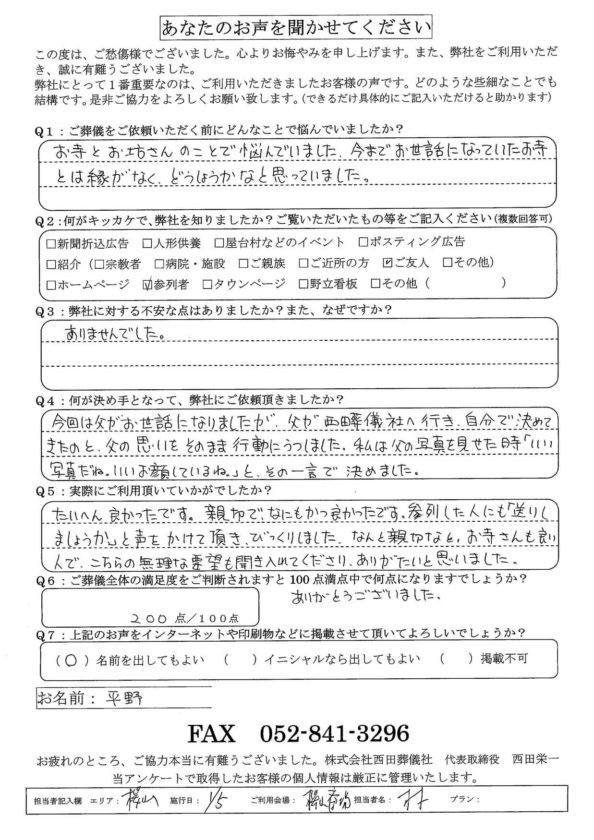 あなたのお声を聞かせてください
この度は、ご愁傷様でございました。心よりお悔やみを申し上げます。また、弊社をご利用いただ
き、誠に有難うございました。
弊社にとって１番重要なのは、ご利用いただきましたお客様の声です。どのような些細なことでも
結構です。是非ご協力をよろしくお願い致します。（できるだけ具体的にご記入いただけると助かります）
Q１：ご葬儀をご依頼いただく前にどんなことで悩んでいましたか？
お寺とお坊さんのことで悩んでいました、今までお世話になっていたお寺
とは縁がなく、どうしようかなと思っていました。
Q２：何がキッカケで、弊社を知りましたか？ご覧いただいたもの等をご記入ください（複数回答可）
□新聞折込広告 □人形供養 □屋台村などのイベント □ポスティング広告
□紹介（□宗教者 □病院・施設 □ご親族 □ご近所の方 ☑ご友人 □その他）
□ホームページ ☑参列者 □タウンページ □野立看板 □その他（ ）
Q３：弊社に対する不安な点はありましたか？また、なぜですか？
ありませんでした。
Q４：何が決め手となって、弊社にご依頼頂きましたか？
今回は父がお世話になりましたが、父が西田葬儀社へ行き、自分で決めて
きたのと、父の思いをそのまま行動にうつしました、私は父の写真を見せた時「いい
写真だね。いいお顔しているね。」と、その一言で決めました。
Q５：実際にご利用頂いていかがでしたか？
たいへん良かったです。親切で、なにもかも良かったです。参列した人にも「送りし
ましょうか」と声をかけて頂き、びっくりしました、なんと親切なと。お寺さんも良い
人で、こちらの無理な要望も聞き入れてくださり、ありがたいと思いました。
ありがとうございました。
Q６：ご葬儀全体の満足度をご判断されますと 100 点満点中で何点になりますでしょうか？
２００ 点/１００点
Q７：上記のお声をインターネットや印刷物などに掲載させて頂いてよろしいでしょうか？
（〇）名前を出してもよい （ ）イニシャルなら出してもよい （ ）掲載不可
お名前：平野
FAX 052-841-3296
お疲れのところ、ご協力本当に有難うございました。株式会社西田葬儀社 代表取締役 西田栄一
当アンケートで取得したお客様の個人情報は厳正に管理いたします。
担当者記入欄 エリア：桜山 施行日：1/5 ご利用会場： 担当者名： プラン：